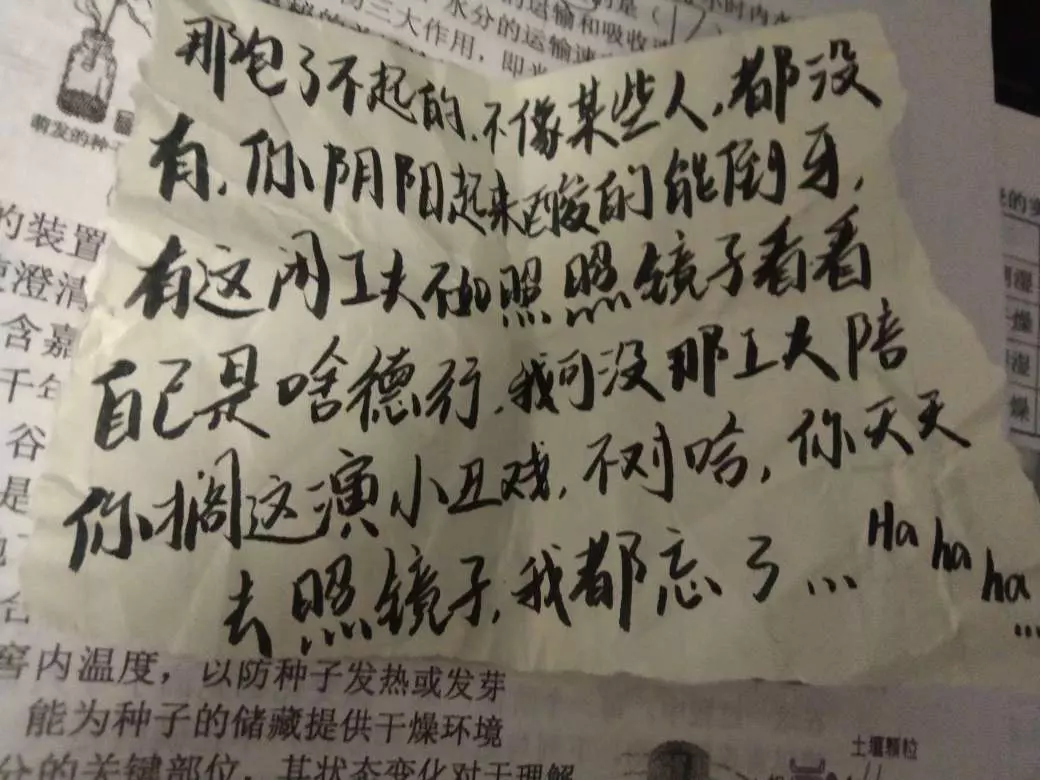 那包了不起的,不像某些人,都没
有,你阴阳起来酸的能倒牙,
有这闲工夫不如照照镜子看看
自己是啥德行,我可没那工夫陪
你搁这演小丑戏,不对哈,你天天
去照镜子,我都忘了...
Ha ha ha ...
水分的运输和吸收
三大作用,即光
水分的运输速
萌发的种
的装置
澄清
含嘉
千年
谷
是
窖内温度,以防种子发热或发芽
能为种子的储藏提供干燥环境
分的关键部位,其状态变化对于理解
土壤颗粒